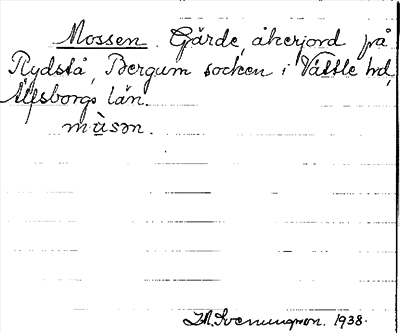 Mossen. Gärde, åkerjord på
Rydstå, Bergum socken i Vättle hd,
Älfsborgs län.
mùsən.
1938.